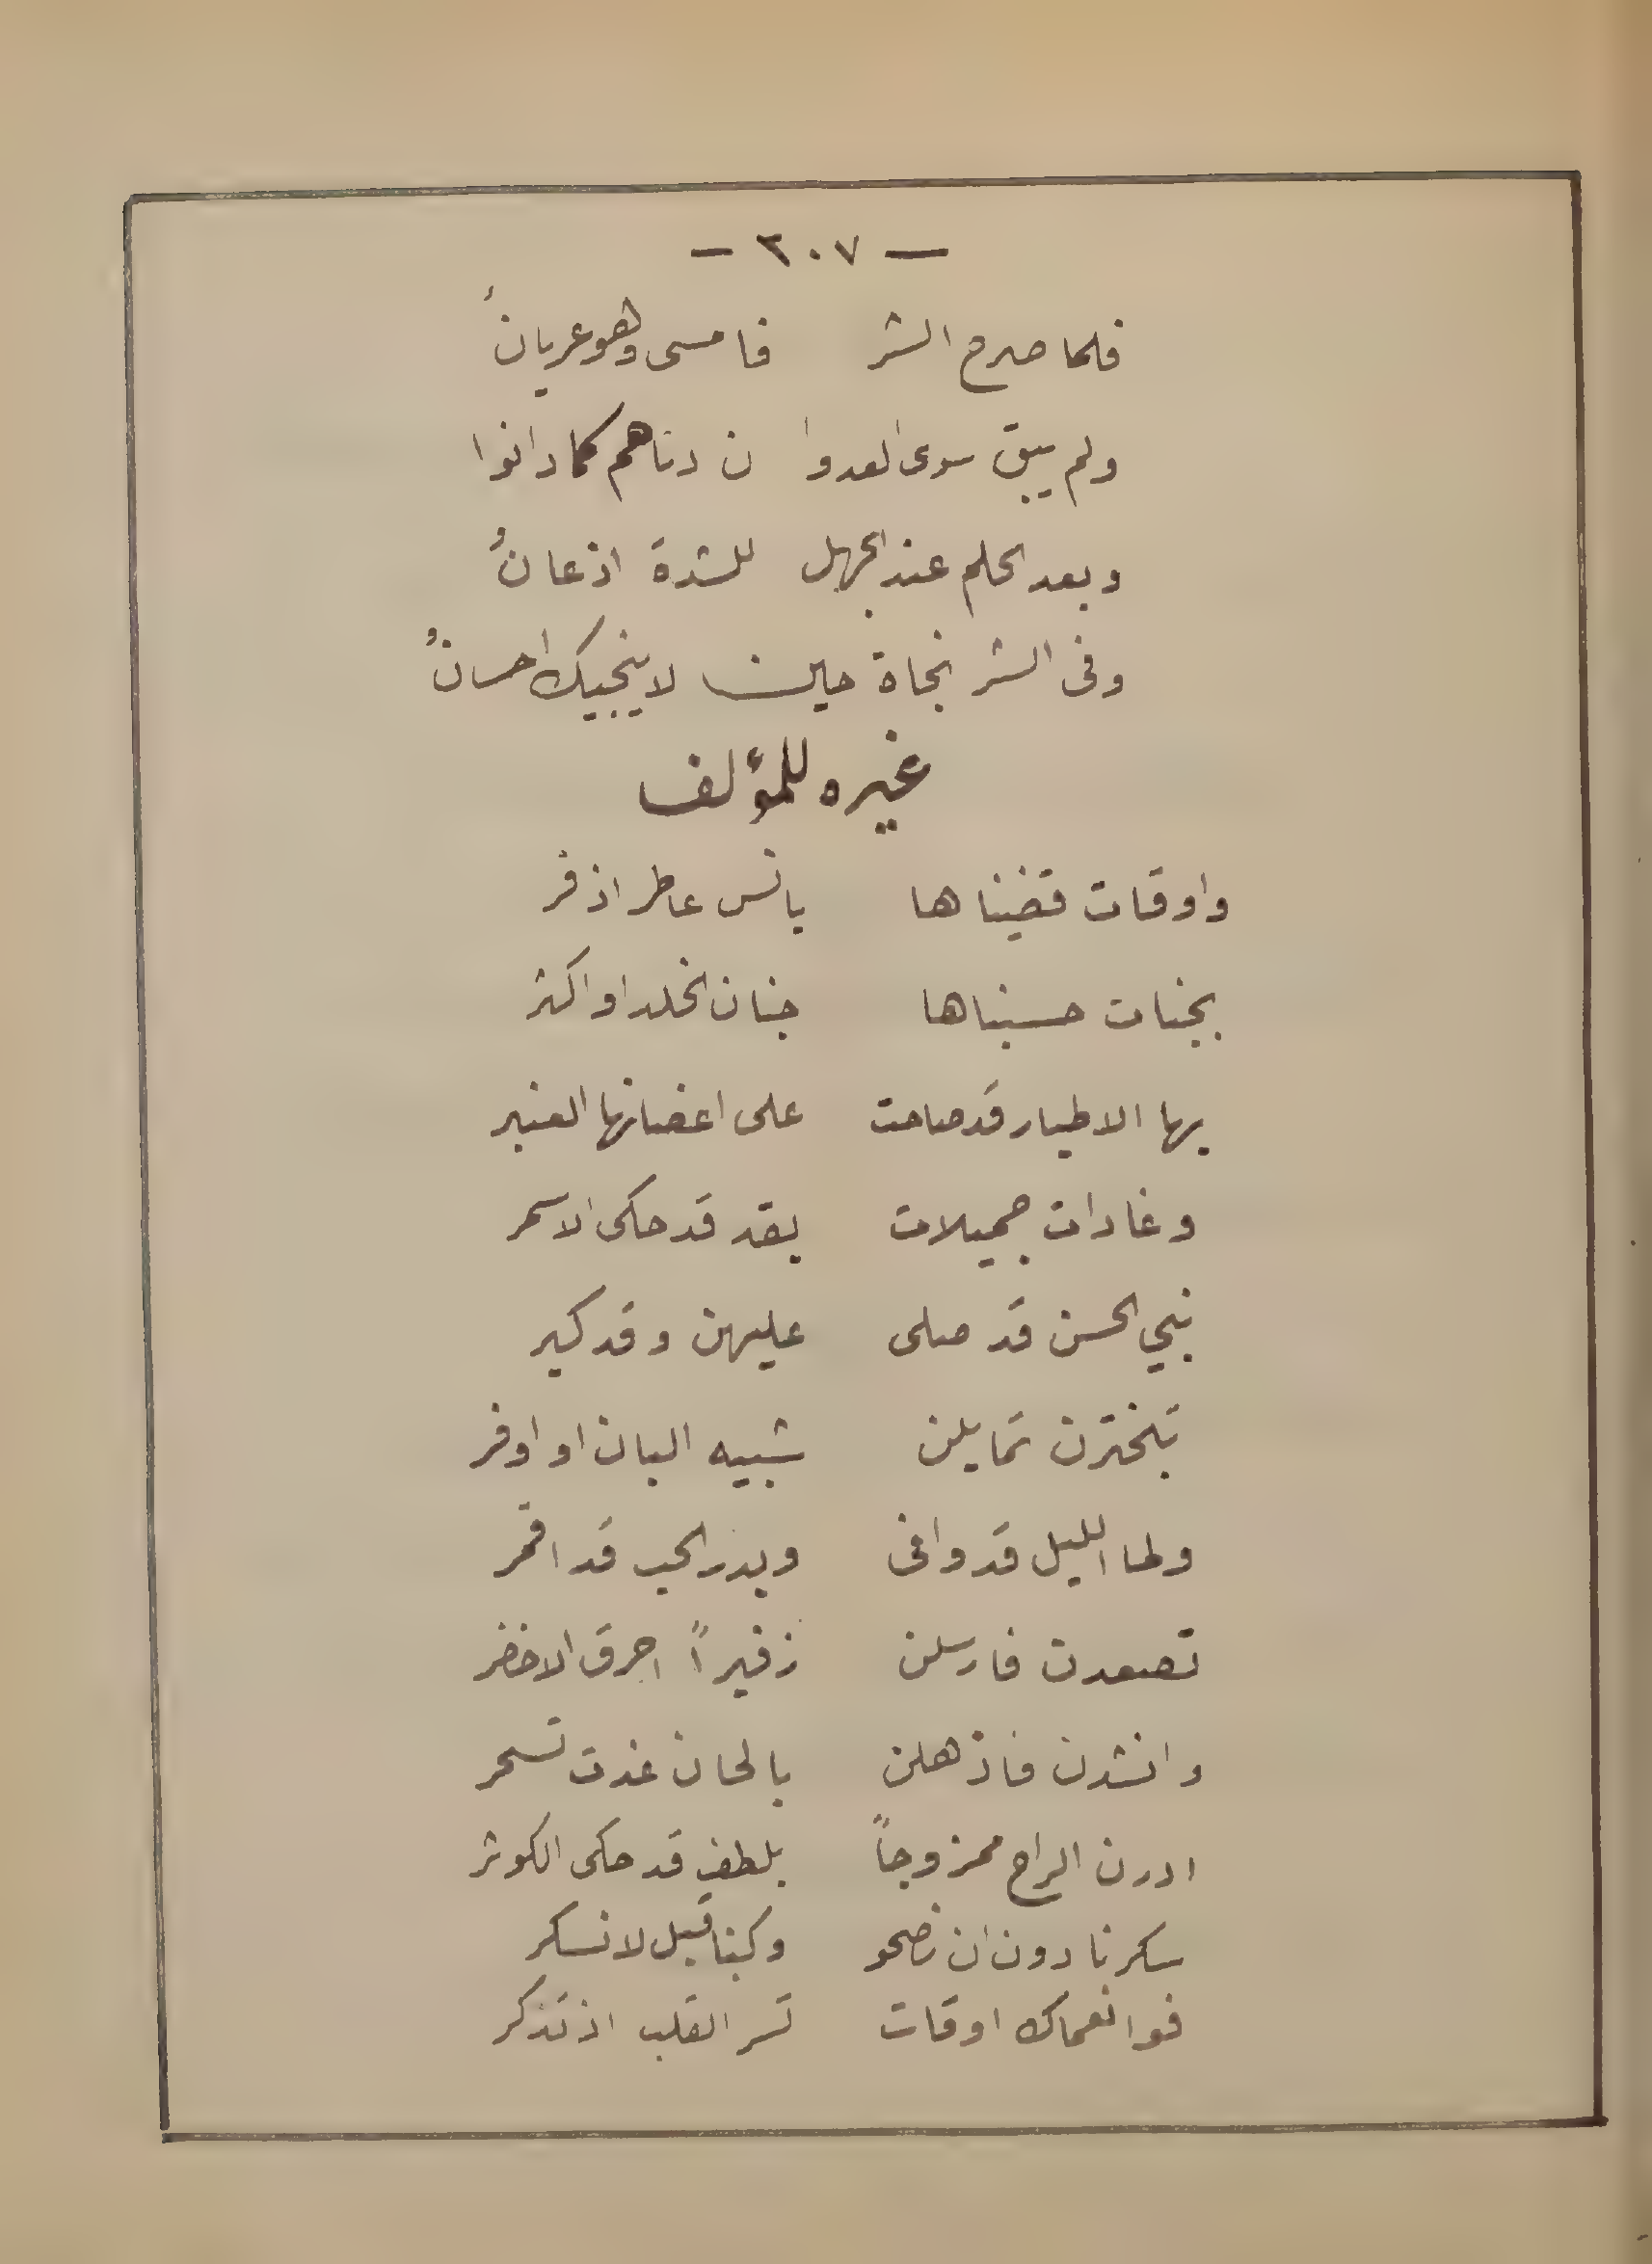 — ٣٠٧ —
فلما صرح الشر فامسى وهو عريانُ
ولم يبق سوى العدوا ن دناهم كما دانوا
وبعد الحلم عند الجهل للشدة اذعانُ
وفى الشر نجاة حين لا ينجيك احسانُ
غيره للمؤلف
واوقات قضيناها بانس عاطر اذفر
بجنات حسبناها جنان الخلد او اكثر
بها الاطيار قد صاحت على اغصانها العنبر
وغادات جميلات بقد قد حكى الاسمر
نبي الحسن قد صلى عليهن وقد كبر
تبخترن تمايلن شبيه البان او اوفر
ولما الليل قد وافى وبدر الحب قد اقمر
تصعدن فارسلن زفيراً احرق الاخضر
وانشدن فاذهلن بالحان غدت تسحر
ادرن الراح ممزوجاً بلطف قد حكى الكوثر
سكرنا دون ان نصحو وكنا قبل لا نسكر
فوا نعماك اوقات تسر القلب اذ تذكر